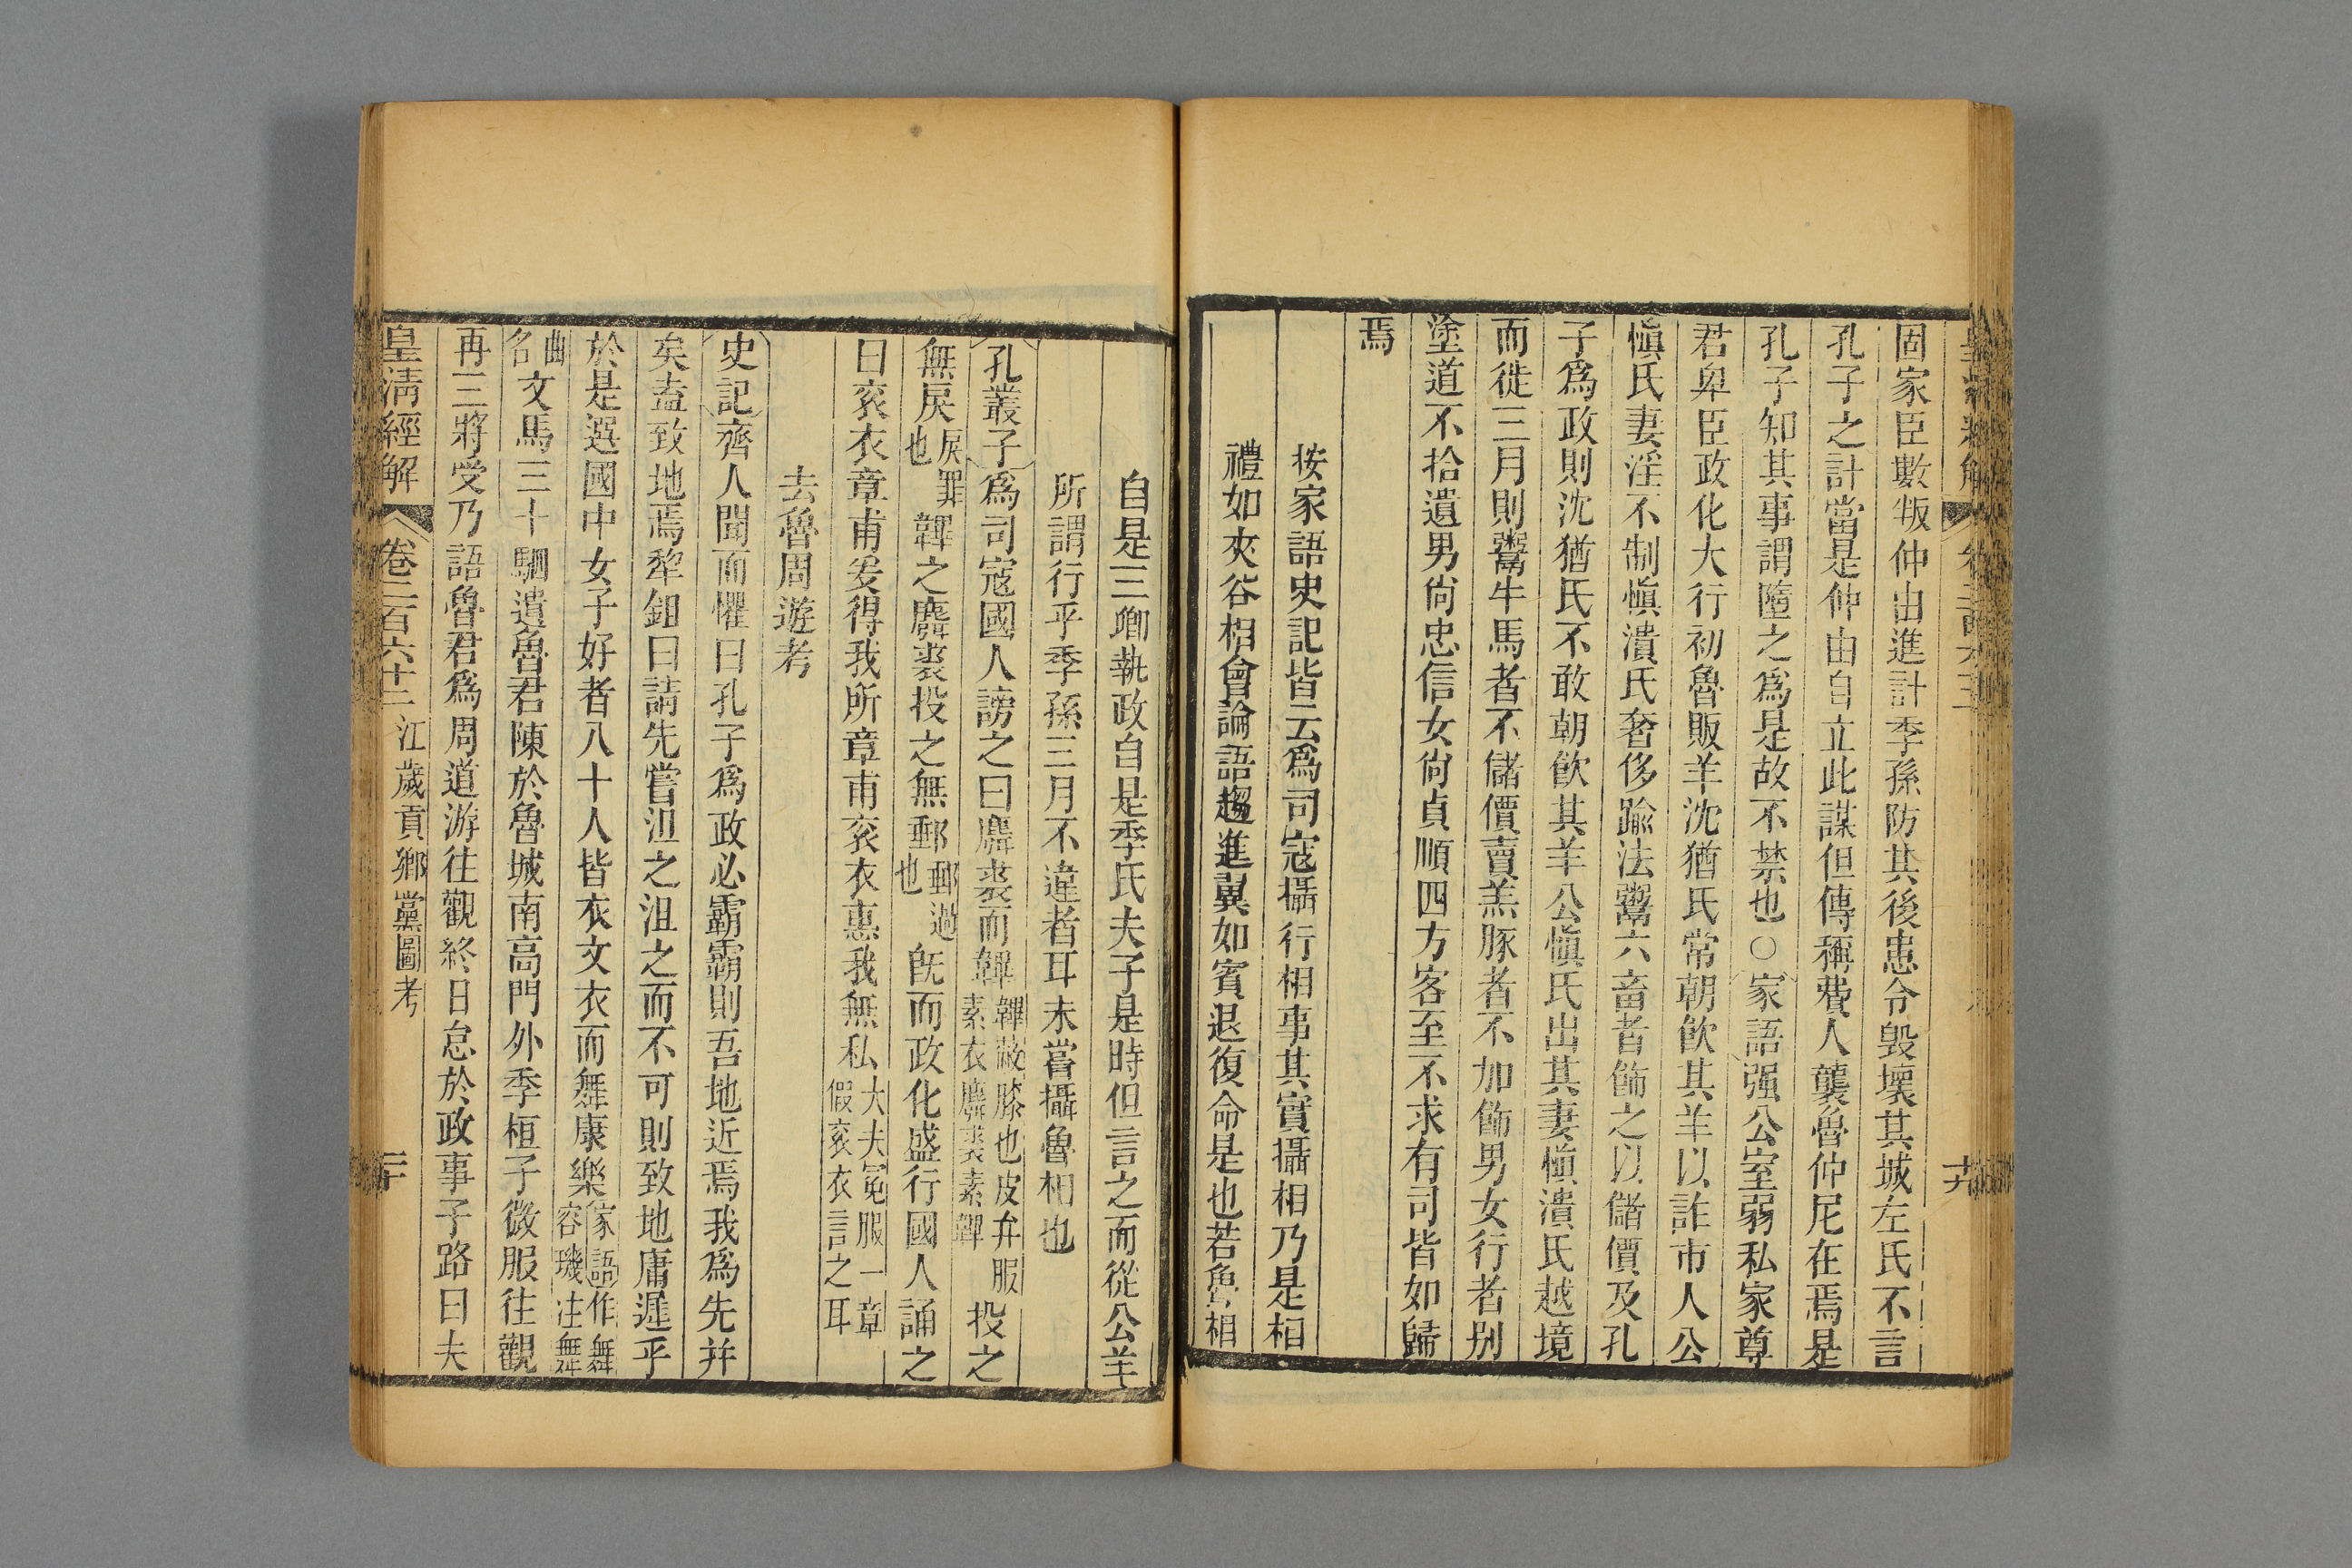 固家臣數叛仲由進計季孫防其後患令毀壞其城左氏不言
孔子之計當是仲由自立此謀但傳稱費人襲魯仲尼在焉是
孔子知其事謂隨之爲是故不禁也○家語强公室弱私家尊
君卑臣政化大行初魯販羊沈猶氏常朝飮其羊以詐市人公
愼氏妻淫不制愼潰氏奢侈踰法鬻六畜者飾之以儲價及孔
子爲政則沈猶氏不敢朝飮其羊公愼氏出其妻愼潰氏越境
而徙三月則鬻牛馬者不儲價賣羔豚者不加飾男女行者別
塗道不拾遺男尙忠信女尙貞順四方客至不求有司皆如歸
焉
按家語史記皆云爲司寇攝行相事其實攝相乃是相
禮如夾谷相會論語趨進翼如賓退復命是也若魯相
自是三卿執政自是季氏夫子是時但言之而從公羊
所謂行乎季孫三月不違者耳未嘗攝魯相也
孔叢子爲司寇國人謗之曰麛裘而韠韠蔽膝也皮弁服素衣麛裘素韠投之
無戾戾罪也韠之麛裘投之無郵郵過也旣而政化盛行國人誦之
曰衮衣章甫爰得我所章甫衮衣惠我無私大夫冕服一章假衮衣言之耳
去魯周遊考
史記齊人聞而懼曰孔子爲政必霸霸則吾地近焉我爲先并
矣盍致地焉犂鉏曰請先嘗沮之沮之而不可則致地庸遲乎
於是選國中女子好者八十人皆衣文衣而舞康樂家語作舞容璣注舞
曲名文馬三十駟遺魯君陳於魯城南高門外季桓子微服往觀
再三將受乃語魯君爲周道游往觀終日怠於政事子路曰夫
皇淸經解 卷二百六十二 江歲貢鄉黨圖考 二十